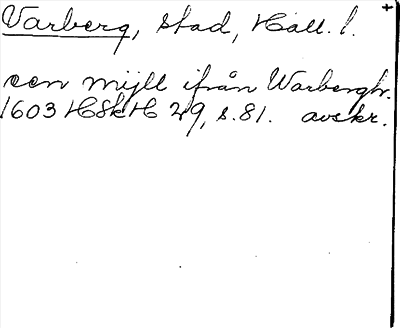 Varberg, stad, Hall. l.
een mijll ifrån Warbergh.
1603 HSkH 29, s. 81. avskr.